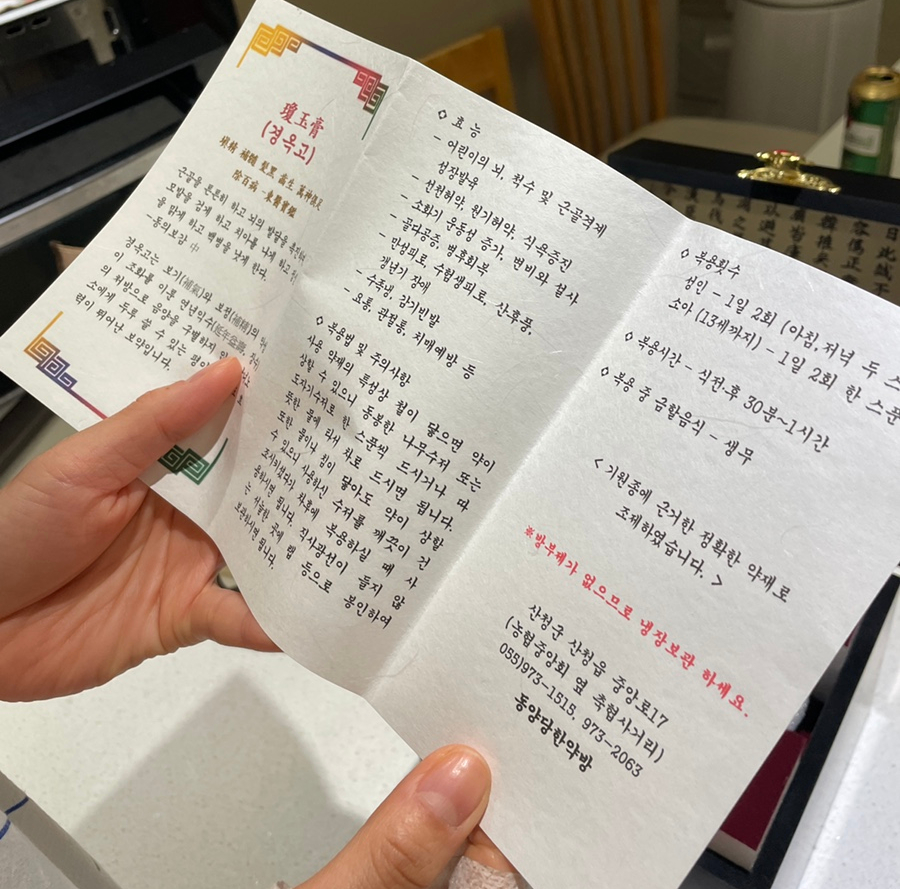 瓊玉膏
(경옥고)
塡精 補髓 髮黑 齒生 萬神俱足
除百病 -東醫寶鑑
근골을 튼튼히 하고 뇌의 발달을
모발을 검게 하고 치아를 나게 하고
을 맑게 하고 백병을 낫게 한다.
-동의보감 中
경옥고는 보기(補氣)와 보정(補精)의
이 조화를 이룬 연년익수(延年益壽,
의 처방으로 음양을 구별하지 않
소에게 두루 쓸 수 있는 평이
력이 뛰어난 보약입니다.
◇ 효 능
- 어린이의 뇌, 척수 및 근골격계
성장발육
- 선천허약, 원기허약, 식욕증진
- 소화기 운동성 증가, 변비와 설사
- 골다공증, 병후회복
- 만성피로, 수험생피로, 산후풍,
갱년기 장애
- 수족냉, 감기빈발
- 요통, 관절통, 치매예방 등
◇ 복용법 및 주의사항
사용 약재의 특성상 철이 닿으면 약이
상할 수 있으니 동봉한 나무수저 또는
도자기수저로 한 스푼씩 드시거나 따
뜻한 물에 타서 차로 드시면 됩니다.
또한 물이나 침이 닿아도 약이 상할
수 있으니 사용하신 수저를 깨끗이 건
조시키셨다가 차후에 복용하실 때 사
용하시면 됩니다. 직사광선이 들지 않
는 서늘한 곳에 랩 등으로 봉인하여
보관하시면 됩니다.
◇ 복용횟수
성인 - 1일 2회 (아침,저녁 두 스
소아 (13세까지) - 1일 2회 한 스푼
◇ 복용시간 - 식전·후 30분~1시간
◇ 복용 중 금할음식 - 생무
< 기원종에 근거한 정확한 약재로
조제하였습니다. >
※방부제가 없으므로 냉장보관 하세요.
산청군 산청읍 중앙로17
(농협중앙회 옆 축협사거리)
055)973-1515, 973-2063
동양당한약방